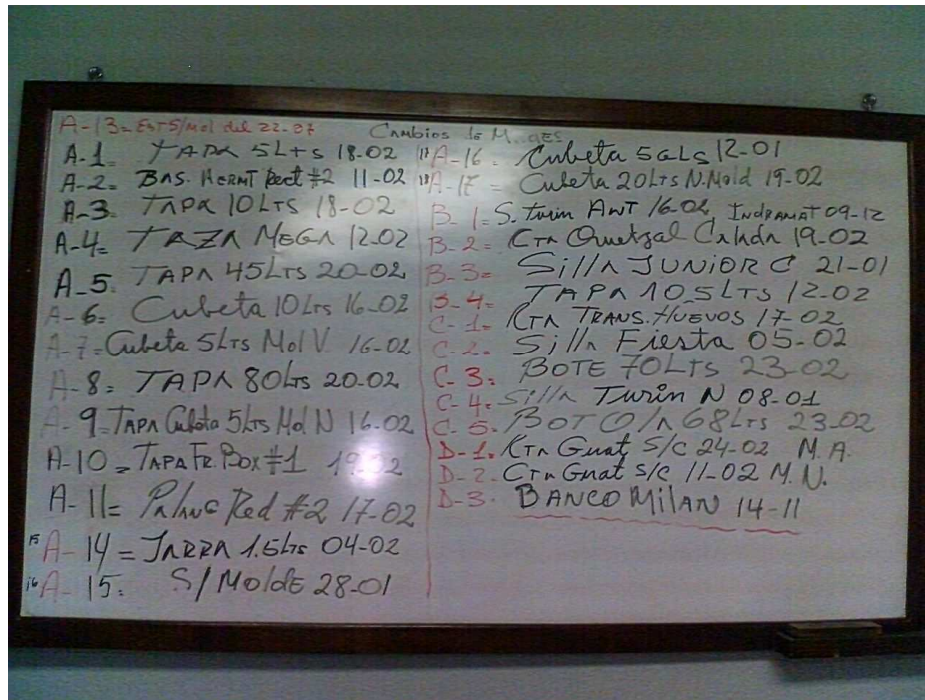 Cambios de
A-13= Est S/Mol del 22-07
A-1= TAPA 5LTS 18-02
A-2= BAS. HERMT Rect #2 11-02
A-3= TAPA 10LTS 18-02
A-4= TAZA MEGA 12-02
A-5= TAPA 45LTS 20-02
A-6= Cubeta 10LTS 16-02
A-7=Cubeta 5LTS Mol V 16-02
A-8= TAPA 80LTS 20-02
A-9=TAPA Cubeta 5LTS Mol N 16-02
A-10=TAPA FR. BOX #1
A-11= Red #2 17-02
15 A-14=JARRA 1.5LTS 04-02
16 A-15= S/MOLDE 28-01
17 A-16= Cubeta 5GLS 12-01
18 A-17= Cubeta 20LTS N.Mold 19-02
B-1=S. Turin ANT 16-02, INDRAMAT 09-12
B-2= CTA Quetzal Calada 19-02
B-3= Silla JUNIOR C 21-01
B-4= TAPA 10.5LTS 12-02
C-1= CTA TRANS. HUEVOS 17-02
C-2= Silla Fiesta 05-02
C-3= BOTE 70LTS 23-02
C-4= Silla Turin N 08-01
C-5= 68LTS 23-02
D-1= CTA Guat S/C 24-02 M.A.
D-2= CTA Guat S/C 11-02 M.N.
D-3= BANCO MILAN 14-11